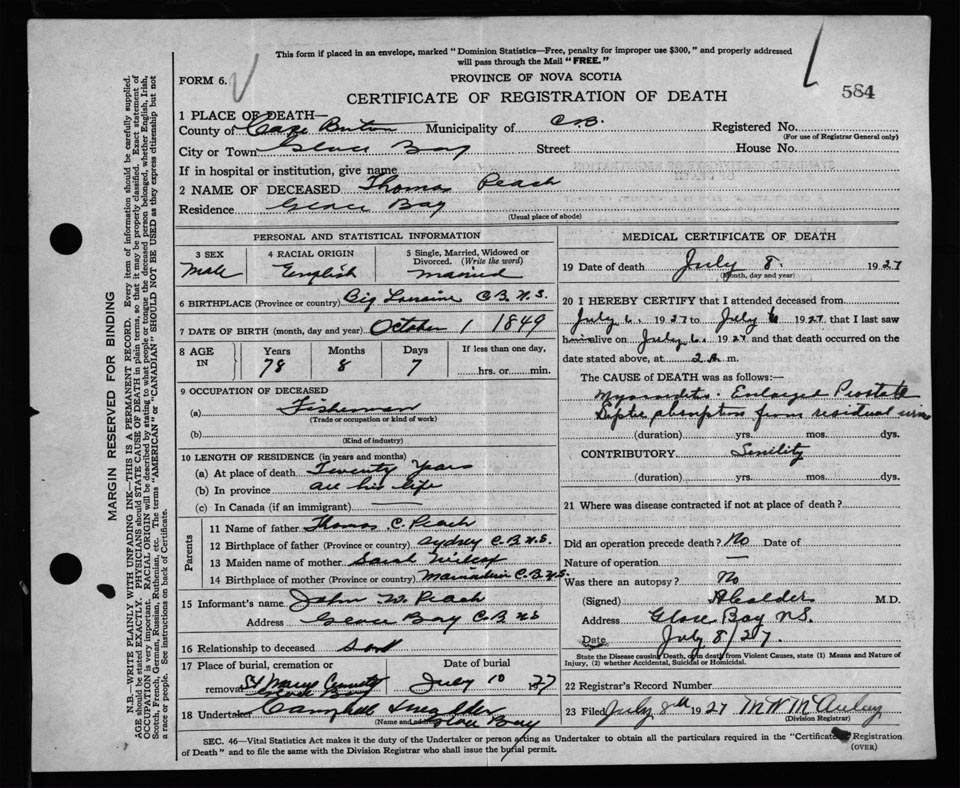 This form if placed in an envelope, marked "Dominion Statistics—Free, penalty for improper use $300," and properly addressed
will pass through the Mail "FREE."
FORM 6.
PROVINCE OF NOVA SCOTIA
584
CERTIFICATE OF REGISTRATION OF DEATH
1 PLACE OF DEATH—
County of Cape Breton Municipality of C.B. Registered No.
(For use of Registrar General only)
City or Town Glace Bay Street House No.
If in hospital or institution, give name
2 NAME OF DECEASED Thomas Peach
Residence Glace Bay
(Usual place of abode)
PERSONAL AND STATISTICAL INFORMATION
3 SEX 4 RACIAL ORIGIN 5 Single, Married, Widowed or
Divorced. (Write the word)
Male English Married
6 BIRTHPLACE (Province or country) Big Lorraine C.B. N.S.
7 DATE OF BIRTH (month, day and year) October 1 1849
8 AGE IN Years Months Days If less than one day,
78 8 7 hrs. or min.
9 OCCUPATION OF DECEASED
(a) Fisherman
(Trade or occupation or kind of work)
(b)
(Kind of industry)
10 LENGTH OF RESIDENCE (in years and months)
(a) At place of death Twenty Years
(b) In province all his life
(c) In Canada (if an immigrant)
Parents
11 Name of father Thomas C. Peach
12 Birthplace of father (Province or country) Sydney C.B. N.S.
13 Maiden name of mother Sarah Wilcox
14 Birthplace of mother (Province or country) Mainadieu C.B. N.S.
15 Informant's name John W. Peach
Address Glace Bay C.B. N.S.
16 Relationship to deceased Son
17 Place of burial, cremation or Date of burial
removal St Marys July 10 1927
18 Undertaker Campbell
(Name and address) Glace Bay
MEDICAL CERTIFICATE OF DEATH
19 Date of death July 8. 1927
(Month, day and year)
20 I HEREBY CERTIFY that I attended deceased from
July 6. 1927 to July 6 1927 that I last saw
him alive on July 6. 1927 and that death occurred on the
date stated above, at 2 A. m.
The CAUSE of DEATH was as follows:—
Myocarditis. Enlarged Prostate
Septic absorption from residual urine
(duration) yrs. mos. dys.
CONTRIBUTORY Senility
(duration) yrs. mos. dys.
21 Where was disease contracted if not at place of death?
Did an operation precede death? No Date of
Nature of operation —
Was there an autopsy? No
(Signed) M.D.
Address Glace Bay N.S.
Date July 8/27.
State the Disease causing Death, or in death from Violent Causes, state (1) Means and Nature of
Injury, (2) whether Accidental, Suicidal or Homicidal.
22 Registrar's Record Number
23 Filed July 8th 1927
(Division Registrar)
SEC. 46—Vital Statistics Act makes it the duty of the Undertaker or person acting as Undertaker to obtain all the particulars required in the "Certificate of Registration
of Death" and to file the same with the Division Registrar who shall issue the burial permit.
(OVER)
MARGIN RESERVED FOR BINDING
N.B.—WRITE PLAINLY WITH UNFADING INK—THIS IS A PERMANENT RECORD. Every item of information should be carefully supplied.
AGE should be stated EXACTLY. PHYSICIANS should STATE CAUSE OF DEATH in plain terms, so that it may be properly classified. Exact statement of
OCCUPATION is very important. RACIAL ORIGIN will be described by stating to what people or tongue the deceased person belonged, whether English, Irish,
Scotch, French, German, Russian, Ruthenian, etc. The terms "AMERICAN" or "CANADIAN" SHOULD NOT BE USED as they express citizenship but not
a race or people. See instructions on back of Certificate.